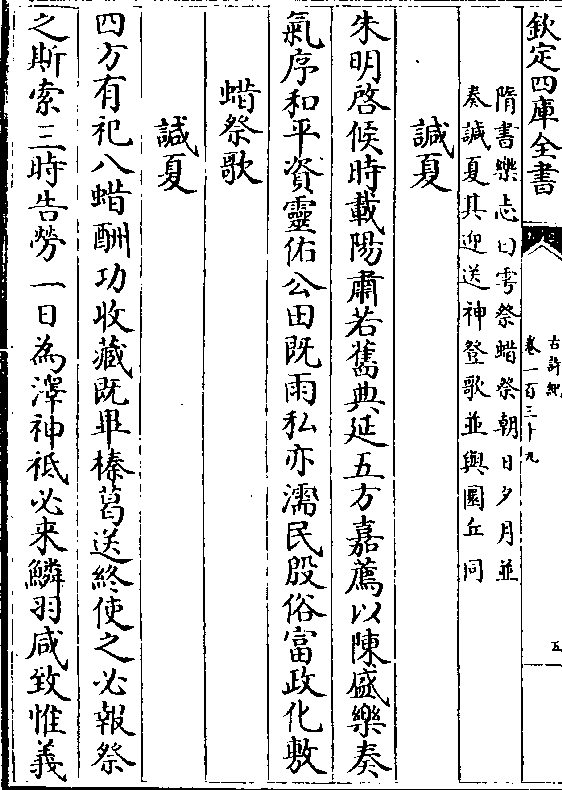 欽定四庫全書
古詩紀
卷一百三十九
五
隋書樂志曰雩祭蜡祭朝日夕月並
奏諴夏其迎送神登歌並與圜丘同
諴夏
朱明啓候時載陽肅若舊典延五方嘉薦以陳盛樂奏
氣序和平資靈佑公田既雨私亦濡民殷俗富政化敷
蜡祭歌
諴夏
四方有祀八蜡酬功收藏既畢榛葛送終使之必報祭
之斯索三時告勞一日為澤神祗必来鱗羽咸致惟義